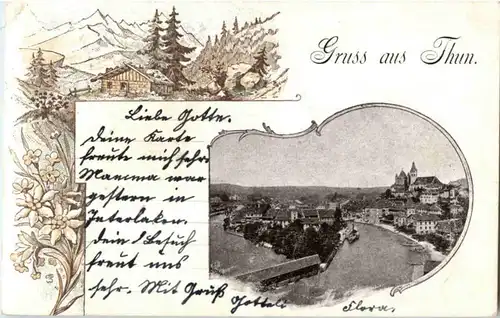 Gruss aus Thun.
Liebe Gotte.
Deine Karte
freute mich sehr.
Mamma war
gestern in
Interlaken.
Dein Besuch
freut uns
sehr. Mit Gruß
Flora.